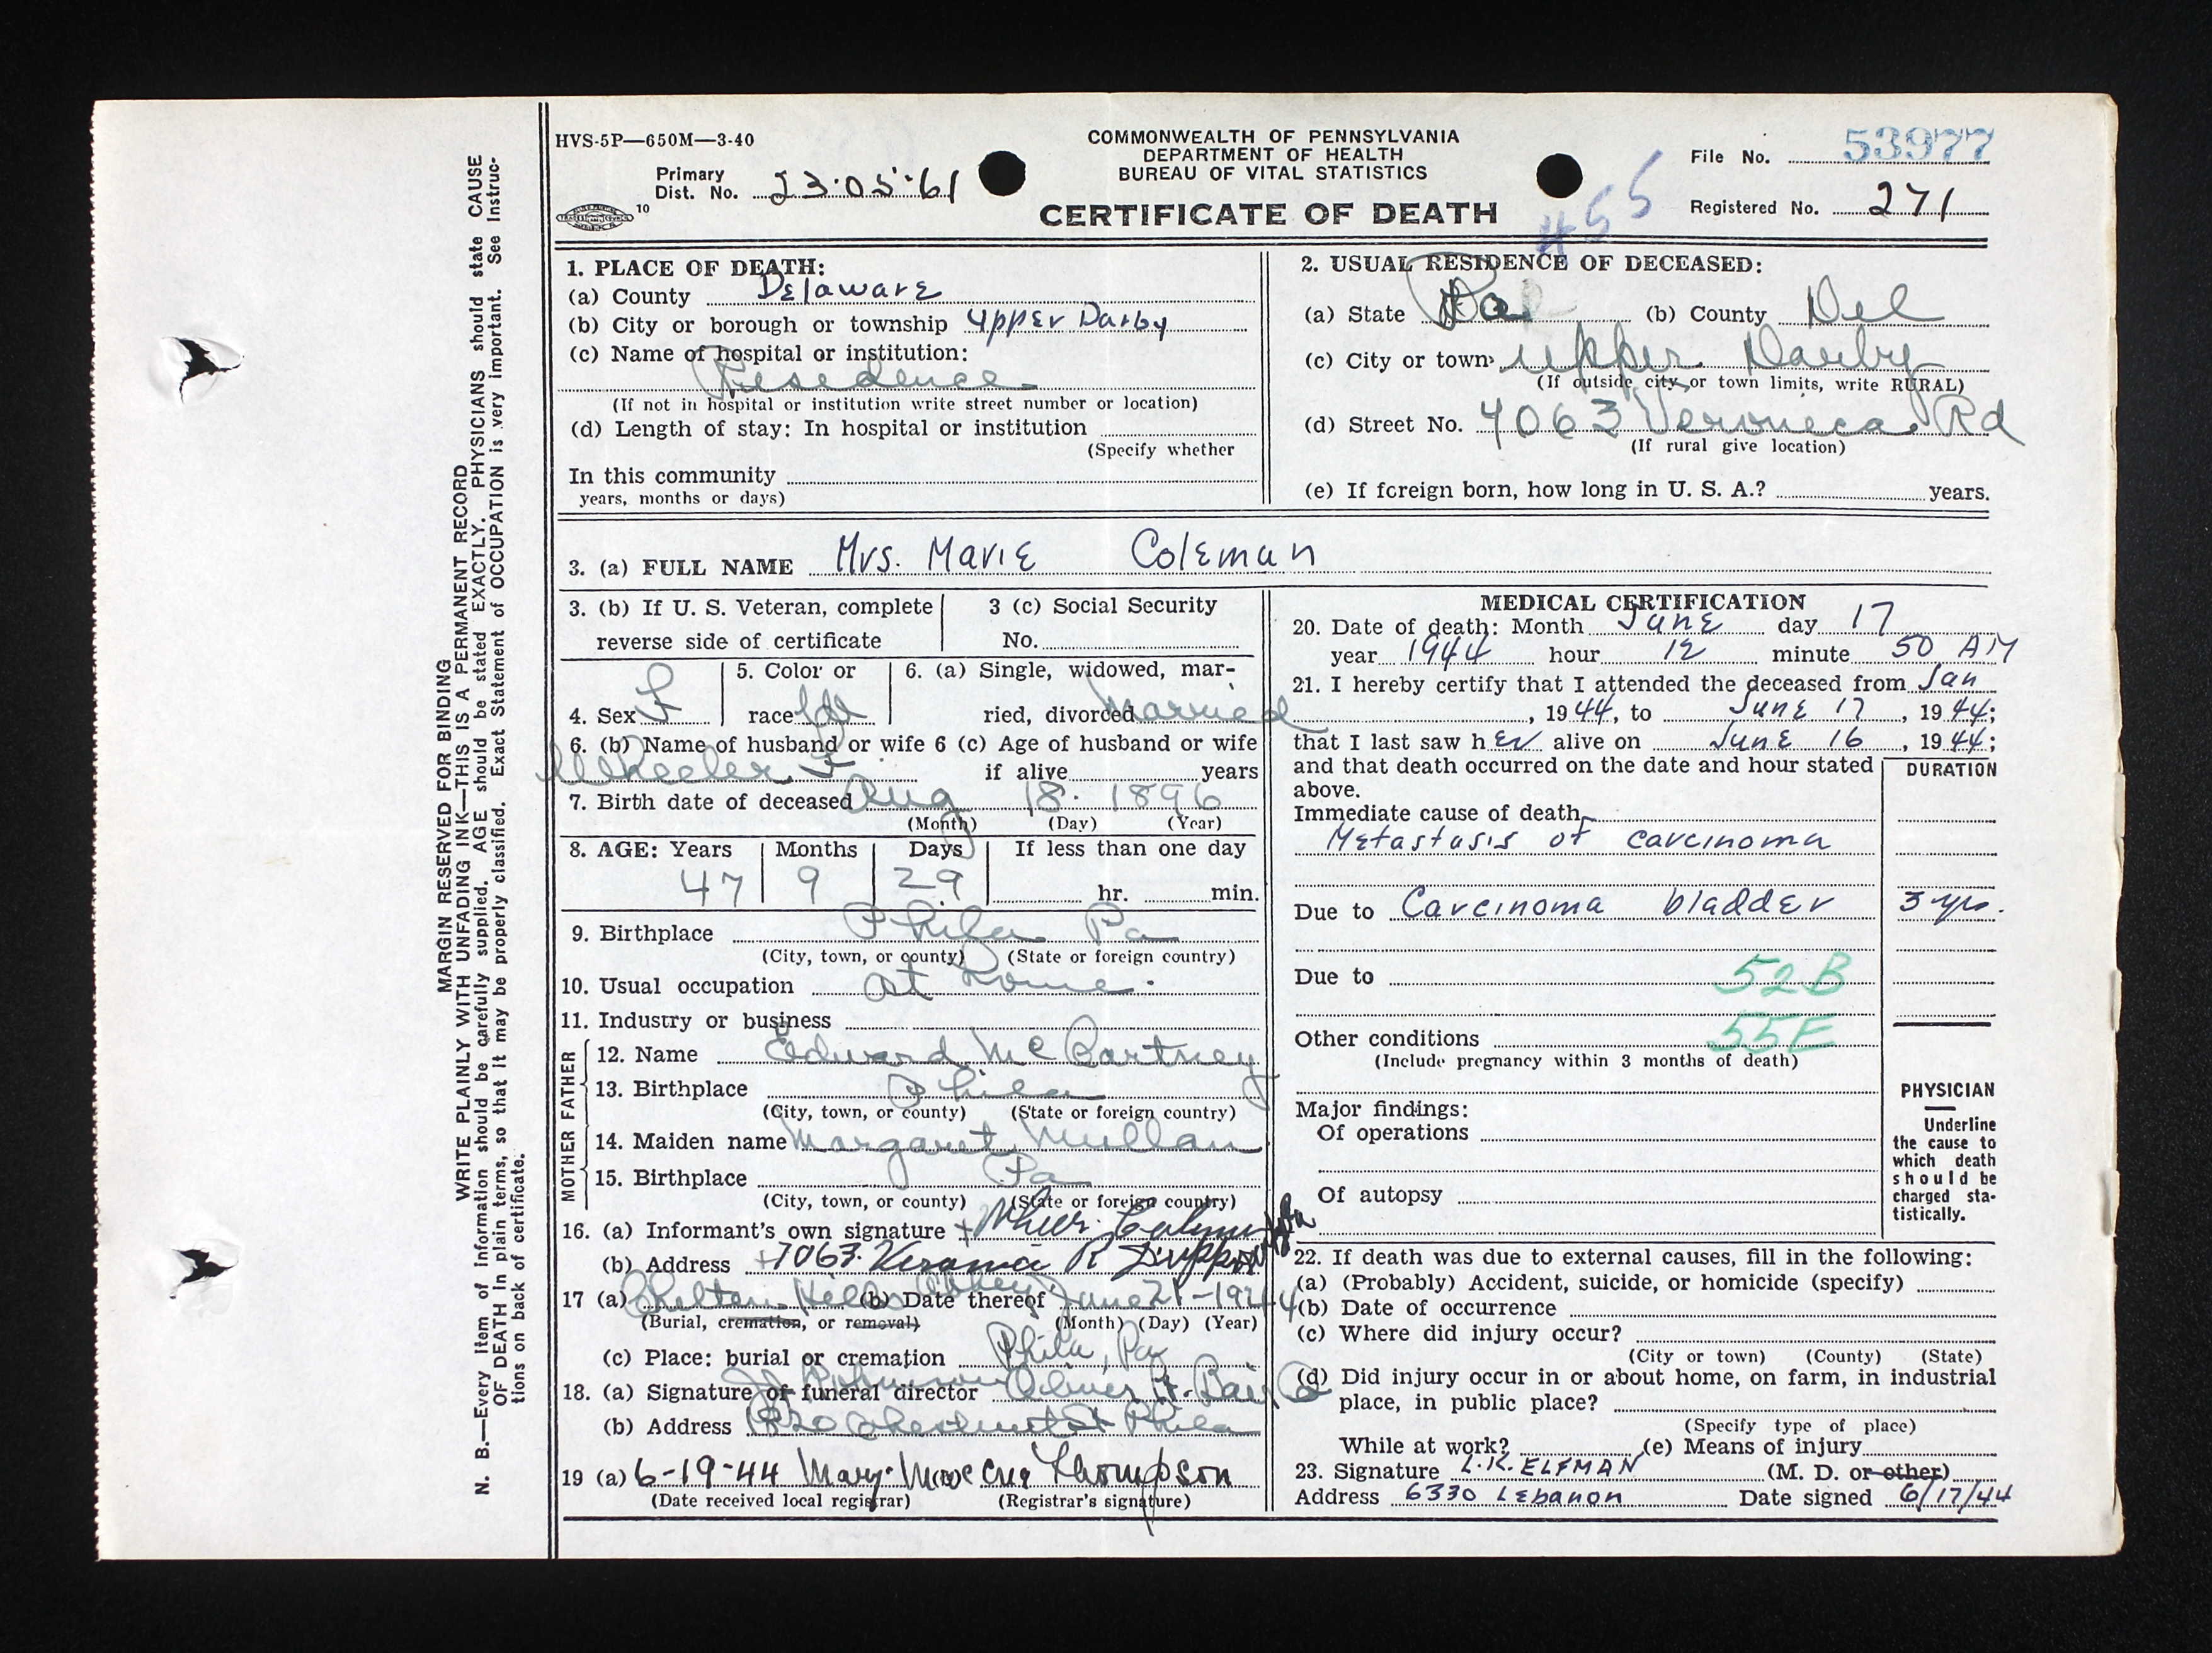 HVS-5P—650M—3-40
COMMONWEALTH OF PENNSYLVANIA
DEPARTMENT OF HEALTH
BUREAU OF VITAL STATISTICS
CERTIFICATE OF DEATH
Primary
Dist. No. 23-05-61
10
File No. 53977
Registered No. 271
#55
MARGIN RESERVED FOR BINDING
WRITE PLAINLY WITH UNFADING INK—THIS IS A PERMANENT RECORD
N. B.—Every item of information should be carefully supplied. AGE should be stated EXACTLY. PHYSICIANS should state CAUSE
OF DEATH in plain terms, so that it may be properly classified. Exact Statement of OCCUPATION is very important. See Instruc-
tions on back of certificate.
1. PLACE OF DEATH:
(a) County Delaware
(b) City or borough or township Upper Darby
(c) Name of hospital or institution:
Residence
(If not in hospital or institution write street number or location)
(d) Length of stay: In hospital or institution
(Specify whether
In this community
years, months or days)
2. USUAL RESIDENCE OF DECEASED:
(a) State Pa (b) County Del
(c) City or town Upper Darby
(If outside city or town limits, write RURAL)
(d) Street No. 7063 Veroneca Rd
(If rural give location)
(e) If foreign born, how long in U. S. A.? years.
3. (a) FULL NAME Mrs. Marie Coleman
3. (b) If U. S. Veteran, complete
reverse side of certificate
3 (c) Social Security
No.
4. Sex F
5. Color or
race
6. (a) Single, widowed, mar-
ried, divorced Married
6. (b) Name of husband or wife
Wheeler F
6 (c) Age of husband or wife
if alive years
7. Birth date of deceased Aug 18. 1896
(Month) (Day) (Year)
8. AGE: Years Months Days If less than one day
47 9 29 hr. min.
9. Birthplace Phila Pa
(City, town, or county) (State or foreign country)
10. Usual occupation at home.
11. Industry or business
FATHER
12. Name Edward McCartney
13. Birthplace Phila
(City, town, or county) (State or foreign country)
MOTHER
14. Maiden name Margaret Mullan
15. Birthplace Pa
(City, town, or county) (State or foreign country)
16. (a) Informant's own signature
(b) Address 7063
17 (a) Chelten Hills (b) Date thereof June 21-1944
(Burial, cremation, or removal) (Month) (Day) (Year)
(c) Place: burial or cremation Phila, Pa
18. (a) Signature of funeral director Oliver H. Bair Co
(b) Address 1820 Chestnut St Phila
19 (a) 6-19-44 Mary Thompson
(Date received local registrar) (Registrar's signature)
MEDICAL CERTIFICATION
20. Date of death: Month June day 17
year 1944 hour 12 minute 50 AM
21. I hereby certify that I attended the deceased from Jan
, 1944, to June 17, 1944;
that I last saw her alive on June 16, 1944;
and that death occurred on the date and hour stated
above.
DURATION
Immediate cause of death
Metastasis of carcinoma
Due to Carcinoma bladder 3 yrs.
Due to
52B
55E
Other conditions
(Include pregnancy within 3 months of death)
Major findings:
Of operations
Of autopsy
PHYSICIAN
Underline
the cause to
which death
should be
charged sta-
tistically.
22. If death was due to external causes, fill in the following:
(a) (Probably) Accident, suicide, or homicide (specify)
(b) Date of occurrence
(c) Where did injury occur?
(City or town) (County) (State)
(d) Did injury occur in or about home, on farm, in industrial
place, in public place?
(Specify type of place)
While at work? (e) Means of injury
23. Signature L. K. ELFMAN (M. D. or other)
Address 6330 Lebanon Date signed 6/17/44